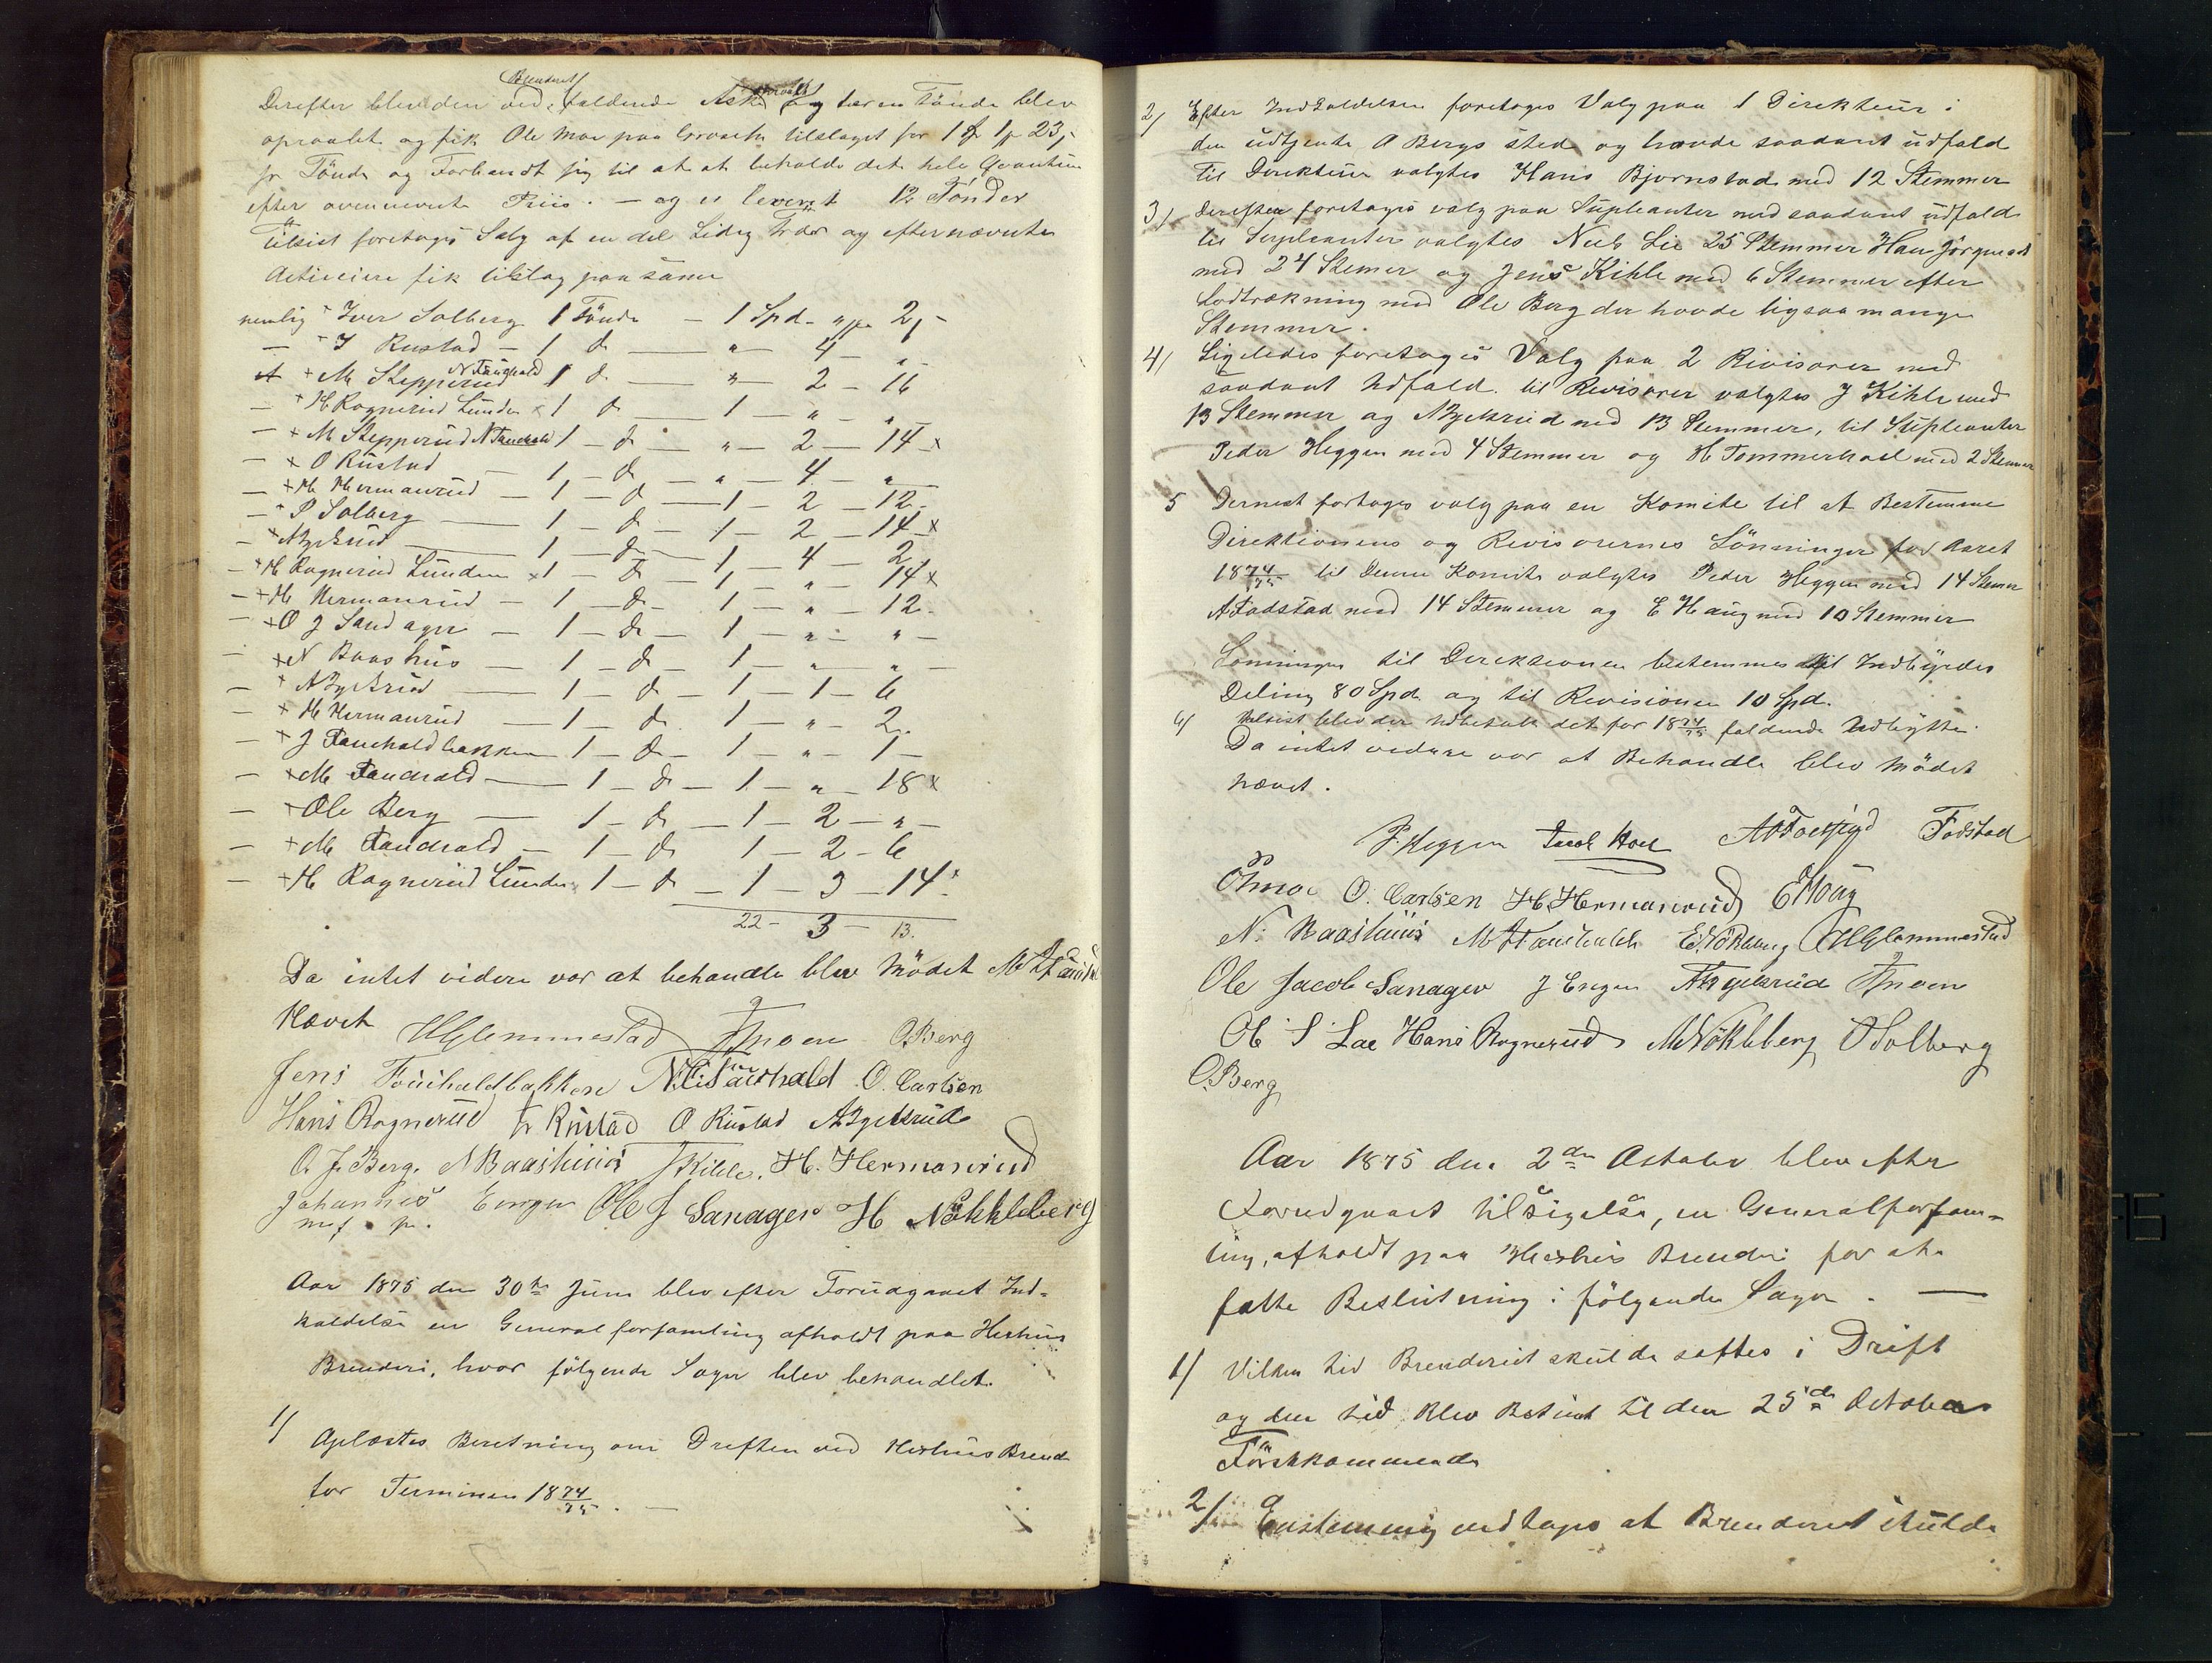 Brenderiet
Derefter blev den ved faldende Aske og hver en Tønde blev
opraabt og fik Ole Moe paa tilslaget for 1 ₰ 23
pr Tønde og Forbandt sig til at at beholde det hele Qvantum
efter ovennevnte Priis. — og er leveret 12 Tønder
Tilsist foretoges Salg af en del Ledig Træer og efternævnte
Actieeiere fik tilslag paa samme
nemlig Iver Solberg 1 Tønde — 1 Spd - " 2 -
— J Rustad — 1 d — " — 4 — "
+ M Stepperud N Tandhald 1 d — " — 2 — 16
— H Rognerud Lunden x 1 d — 1 — " — "
— + M Stepperud N Tandhald 1 — d — " — 2 — 14 x
— + O Rustad — 1 — d — " — 4 — "
— + H Hermanrud — 1 — d — 1 — 2 — 12
— P Solberg — 1 — d — 1 — 2 — 14 x
— + A Bjelkrud — 1 — d — 1 — 4 — 2
— + H Rognerud Lunden x 1 — d — 1 — " — 14 x
— + H Hermanrud — 1 — d — 1 — " — 12
— + O J Sandager — 1 — d — 1 — " — "
— + N Baashus — 1 — d — 1 — " — "
— + A Bjelkrud — 1 — d — 1 — 1 — 6
— + H Hermanrud — 1 — d — 1 — " — 2
— + J Tandhaldbakken 1 — d — 1 — " — 1
— + M Tandhald — 1 — d — 1 — " — 18 x
— + Ole Berg — 1 — d — 1 — 2 — "
— + M Tandhald — 1 — d 1 — 2 — 6
— + H Rognerud Lunden 1 — d — 1 — 3 — 14 x
22 — 3 — 13.
Da intet videre var at behandle blev Mødet
Hævet H Glemmestad Moen O. Berg
Jens Touhaldbakken N. Tandhald O. Carlsen
Hans Rognerud Rustad O Rustad A Bjelkrud
O. J. Berg. N Baashuus J Kihle. H. Hermanrud
Johannes Engen Ole J Sanager H Nøkkleberg
m. f. p.
Aar 1875 den 30te Juni blev efter Forudgaaet Ind-
kaldelse en Generalforsamling afholdt paa Heshus
Brenderi, hvor følgende Sager blev behandlet.
1/ Oplæstes Beretning om Driften ved Heshus Brend
for Terminen 18 74/75. —
2/ Efter Indkaldelsen foretoges Valg paa 1 Direkteur i
den udtjente A Bergs sted og havde saadant udfald
Til Direkteur valgtes Hans Bjørnstad med 12 Stemmer
3/ Derefter foretoges valg paa Supleanter med saadant udfald
til Supleanter valgtes Niels Lie 25 Stemmer Han Jörgen
med 24 Stemer og Jens Kihle med 6 Stemmer efter
Lodtrækning med Ole Berg der havde ligsaa mange
Stemmer.
4/ Ligeledes foretoges Valg paa 2 Revisorer med
saadant Udfald. til Revisorer valgtes J Kihle med
13 Stemmer og A Bjelkrud med 13 Stemmer, til Supleanter
Peder Heggen med 4 Stemmer og H Tommerhoel med 2 Stemmer
5 Dernest fortoges valg paa en Komite til at Bestemme
Direktionens og Revisorernes Lønninger for Aaret
18 74/75 til Denne Komite valgtes Peder Heggen med 14 Stemer
A Fodstad med 14 Stemmer og E Haug med 10 Stemmer
Lønningen til Direktionen bestemmes til Indbyrdes
Deling 80 Spd. og til Revisionen 10 Spd.
6/ Tilsist blev der udbetalt det for 18 74/75 faldende Udbytte.
Da intet videre var at Behandle blev Mødet
hævet.
P. Heggen Jacob Hoel Fodstad
O Moe O. Carlsen H. Hermanrud E Houg
N. Baashuus M Tandhald E Nökleberg H Glemmestad
Ole Jacob Sanager J Engen A Bjelkrud Moen
Ol S Lae Hans Rognerud M Nökleberg O Solberg
O. Berg
Aar 1875 den 2den Octaber blev efter
Forudgaaet tilsigelse, en Generalforsam-
ling, afholdt paa Heshus Brenderi for at
fatte Beslutning i følgende Sager. —
1/ Vilken tid Brenderiet skulde sættes i Drift
og den tid blev Bestemt til den 25de October
Førstkommende
2/ Enstemmig vedtoges at Brenderiet skulde